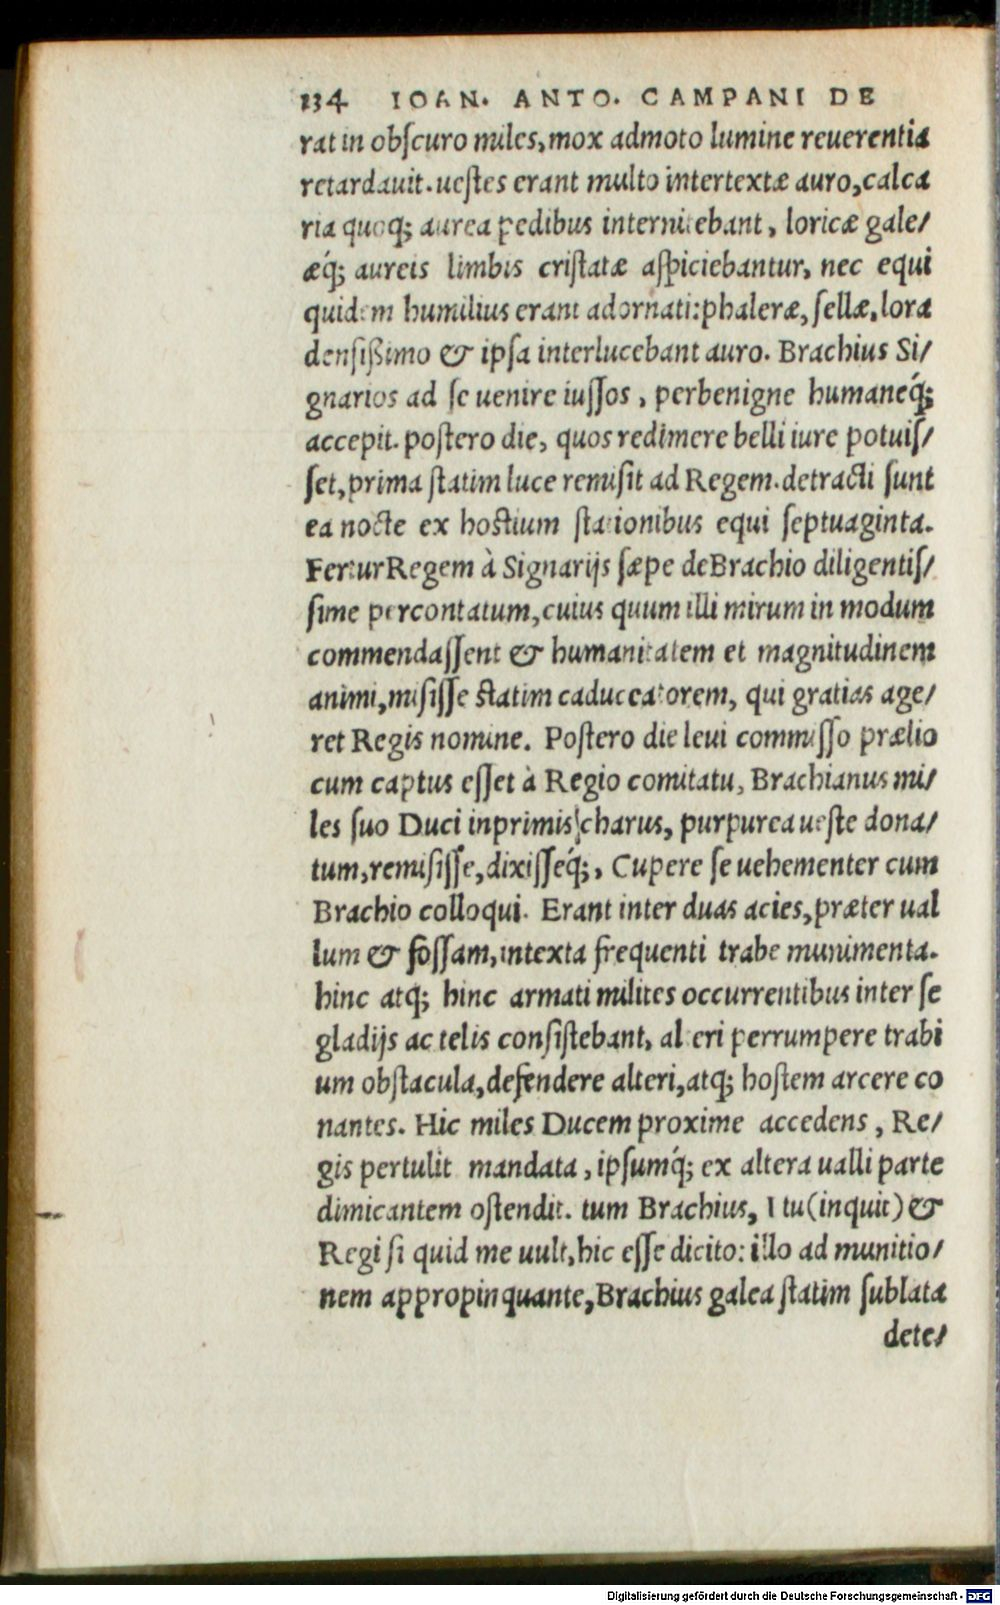 134 IOAN. ANTO. CAMPANI DE
rat in obſcuro miles, mox admoto lumine reuerentia
retardauit. ueſtes erant multo intertextæ auro, calca
ria quoq; aurea pedibus internitebant, loricæ gale/
æq́; aureis limbis criſtatæ aſpiciebantur, nec equi
quidem humilius erant adornati: phaleræ, ſellæ, lora
denſißimo & ipſa interlucebant auro. Brachius Si/
gnarios ad ſe uenire iuſſos, perbenigne humaneq́;
accepit. poſtero die, quos redimere belli iure potuiſ/
ſet, prima ſtatim luce remiſit ad Regem. detracti ſunt
ea nocte ex hoſtium ſtationibus equi ſeptuaginta.
Fertur Regem à Signarijs ſæpe de Brachio diligentiſ/
ſime percontatum, cuius quum illi mirum in modum
commendaſſent & humanitatem et magnitudinem
animi, miſiſſe ſtatim caduceatorem, qui gratias age/
ret Regis nomine. Poſtero die leui commiſſo prælio
cum captus eſſet à Regio comitatu, Brachianus mi/
les ſuo Duci inprimis charus, purpurea ueſte dona/
tum, remiſiſſe, dixiſſeq́;, Cupere ſe uehementer cum
Brachio colloqui. Erant inter duas acies, præter ual
lum & foſſam, intexta frequenti trabe munimenta.
hinc atq; hinc armati milites occurrentibus inter ſe
gladijs ac telis conſiſtebant, alteri perrumpere trabi
um obſtacula, defendere alteri, atq; hoſtem arcere co
nantes. Hic miles Ducem proxime accedens, Re/
gis pertulit mandata, ipſumq́; ex altera ualli parte
dimicantem oſtendit. tum Brachius, I tu (inquit) &
Regi ſi quid me uult, hic eſſe dicito: illo ad munitio/
nem appropinquante, Brachius galea ſtatim ſublata
dete/
Digitalisierung gefördert durch die Deutsche Forschungsgemeinschaft - DFG